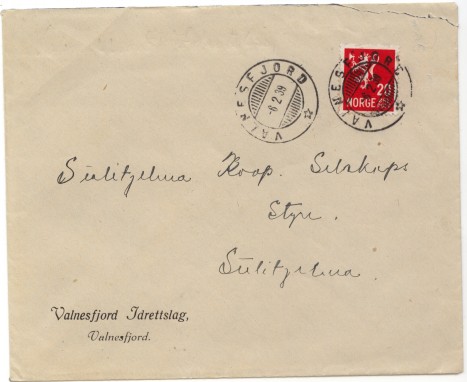 VALNESFJORD
-6.2.39
VALNESFJORD
20
NORGE
Sulitjelma Koop. Selskaps
Styre.
Sulitjelma.
Valnesfjord Idrettslag,
Valnesfjord.